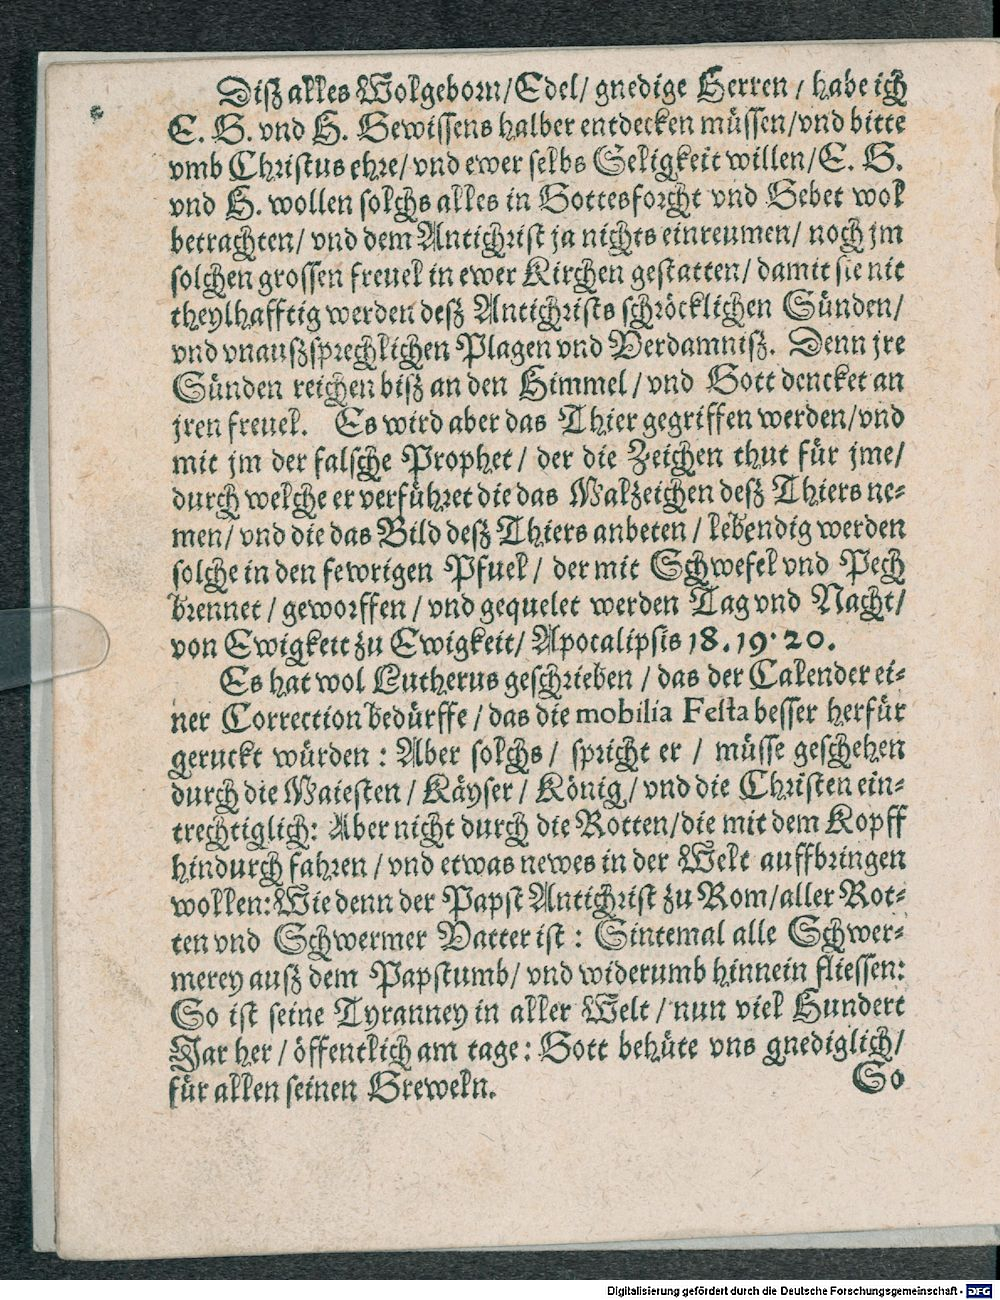 Diſz alles Wolgeborn/ Edel/ gnedige Herren / habe ich
E. G. vnd H. Gewiſſens halber entdecken müſſen/ vnd bitte
vmb Chriſtus ehre/ vnd ewer ſelbs Seligkeit willen/ E. G.
vnd H. wollen ſolchs alles in Gottesforcht vnd Gebet wol
betrachten/ vnd dem Antichriſt ja nichts einreumen/ noch jm
ſolchen groſſen freuel in ewer Kirchen geſtatten/ damit ſie nit
theylhafftig werden deſz Antichriſts ſchröcklichen Sünden/
vnd vnauſzſprechlichen Plagen vnd Verdamniſz. Denn jre
Sünden reichen biſz an den Himmel / vnd Gott dencket an
jren freuel. Es wird aber das Thier gegriffen werden/ vnd
mit jm der falſche Prophet / der die Zeichen thut für jme/
durch welche er verführet die das Malzeichen deſz Thiers ne-
men/ vnd die das Bild deſz Thiers anbeten / lebendig werden
ſolche in den fewrigen Pfuel / der mit Schwefel vnd Pech
brennet / geworffen / vnd gequelet werden Tag vnd Nacht/
von Ewigkeit zu Ewigkeit/ Apocalipſis 18. 19. 20.
Es hat wol Lutherus geſchrieben / das der Calender ei-
ner Correction bedürffe / das die mobilia Feſta beſſer herfür
geruckt würden : Aber ſolchs / ſpricht er / müſſe geſchehen
durch die Maieſten / Käyſer / König / vnd die Chriſten ein-
trechtiglich: Aber nicht durch die Rotten/ die mit dem Kopff
hindurch fahren / vnd etwas newes in der Welt auffbringen
wollen: Wie denn der Papſt Antichriſt zu Rom/ aller Rot-
ten vnd Schwermer Vatter iſt : Sintemal alle Schwer-
merey auſz dem Papſtumb/ vnd widerumb hinnein flieſſen:
So iſt ſeine Tyranney in aller Welt / nun viel Hundert
Jar her / öffentlich am tage : Gott behüte vns gnediglich/
für allen ſeinen Greweln.
So
Digitalisierung gefördert durch die Deutsche Forschungsgemeinschaft - DFG